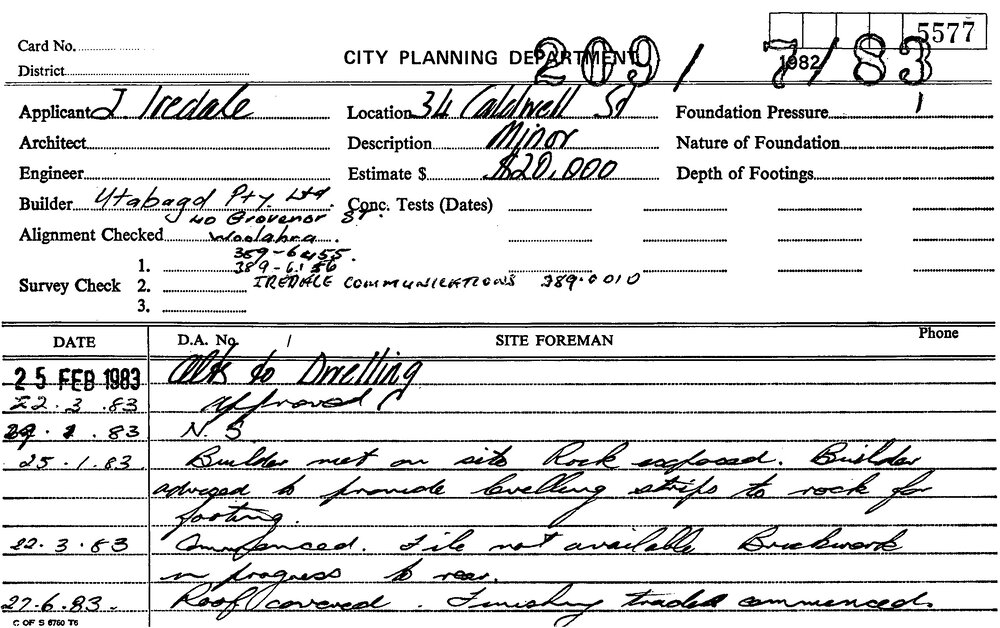 5577
Card No.
CITY PLANNING DEPARTMENT 209/7/83
1982
District
Applicant J Iredale Location 34 Caldwell St Foundation Pressure 1
Architect Description Minor Nature of Foundation
Engineer Estimate $ $20,000 Depth of Footings
Builder Utabagd Pty. Ltd. Conc. Tests (Dates)
40 Grovenor ST.
Alignment Checked Woolahra.
389-6455.
1. 389-6156
Survey Check 2. IREDALE COMMUNICATIONS 389.0010
3.
DATE D.A. No. / SITE FOREMAN Phone
25 FEB 1983 Alts to Dwelling
22.3.83 approved
.83 N.S
25.1.83. Builder met on site Rock exposed. Builder
advised to provide levelling strips to rock for
footing.
22.3.83 Commenced. File not available Brickwork
in progress to rear.
27.6.83. Roof covered. Finishing trades commenced.
C OF S 6760 T6